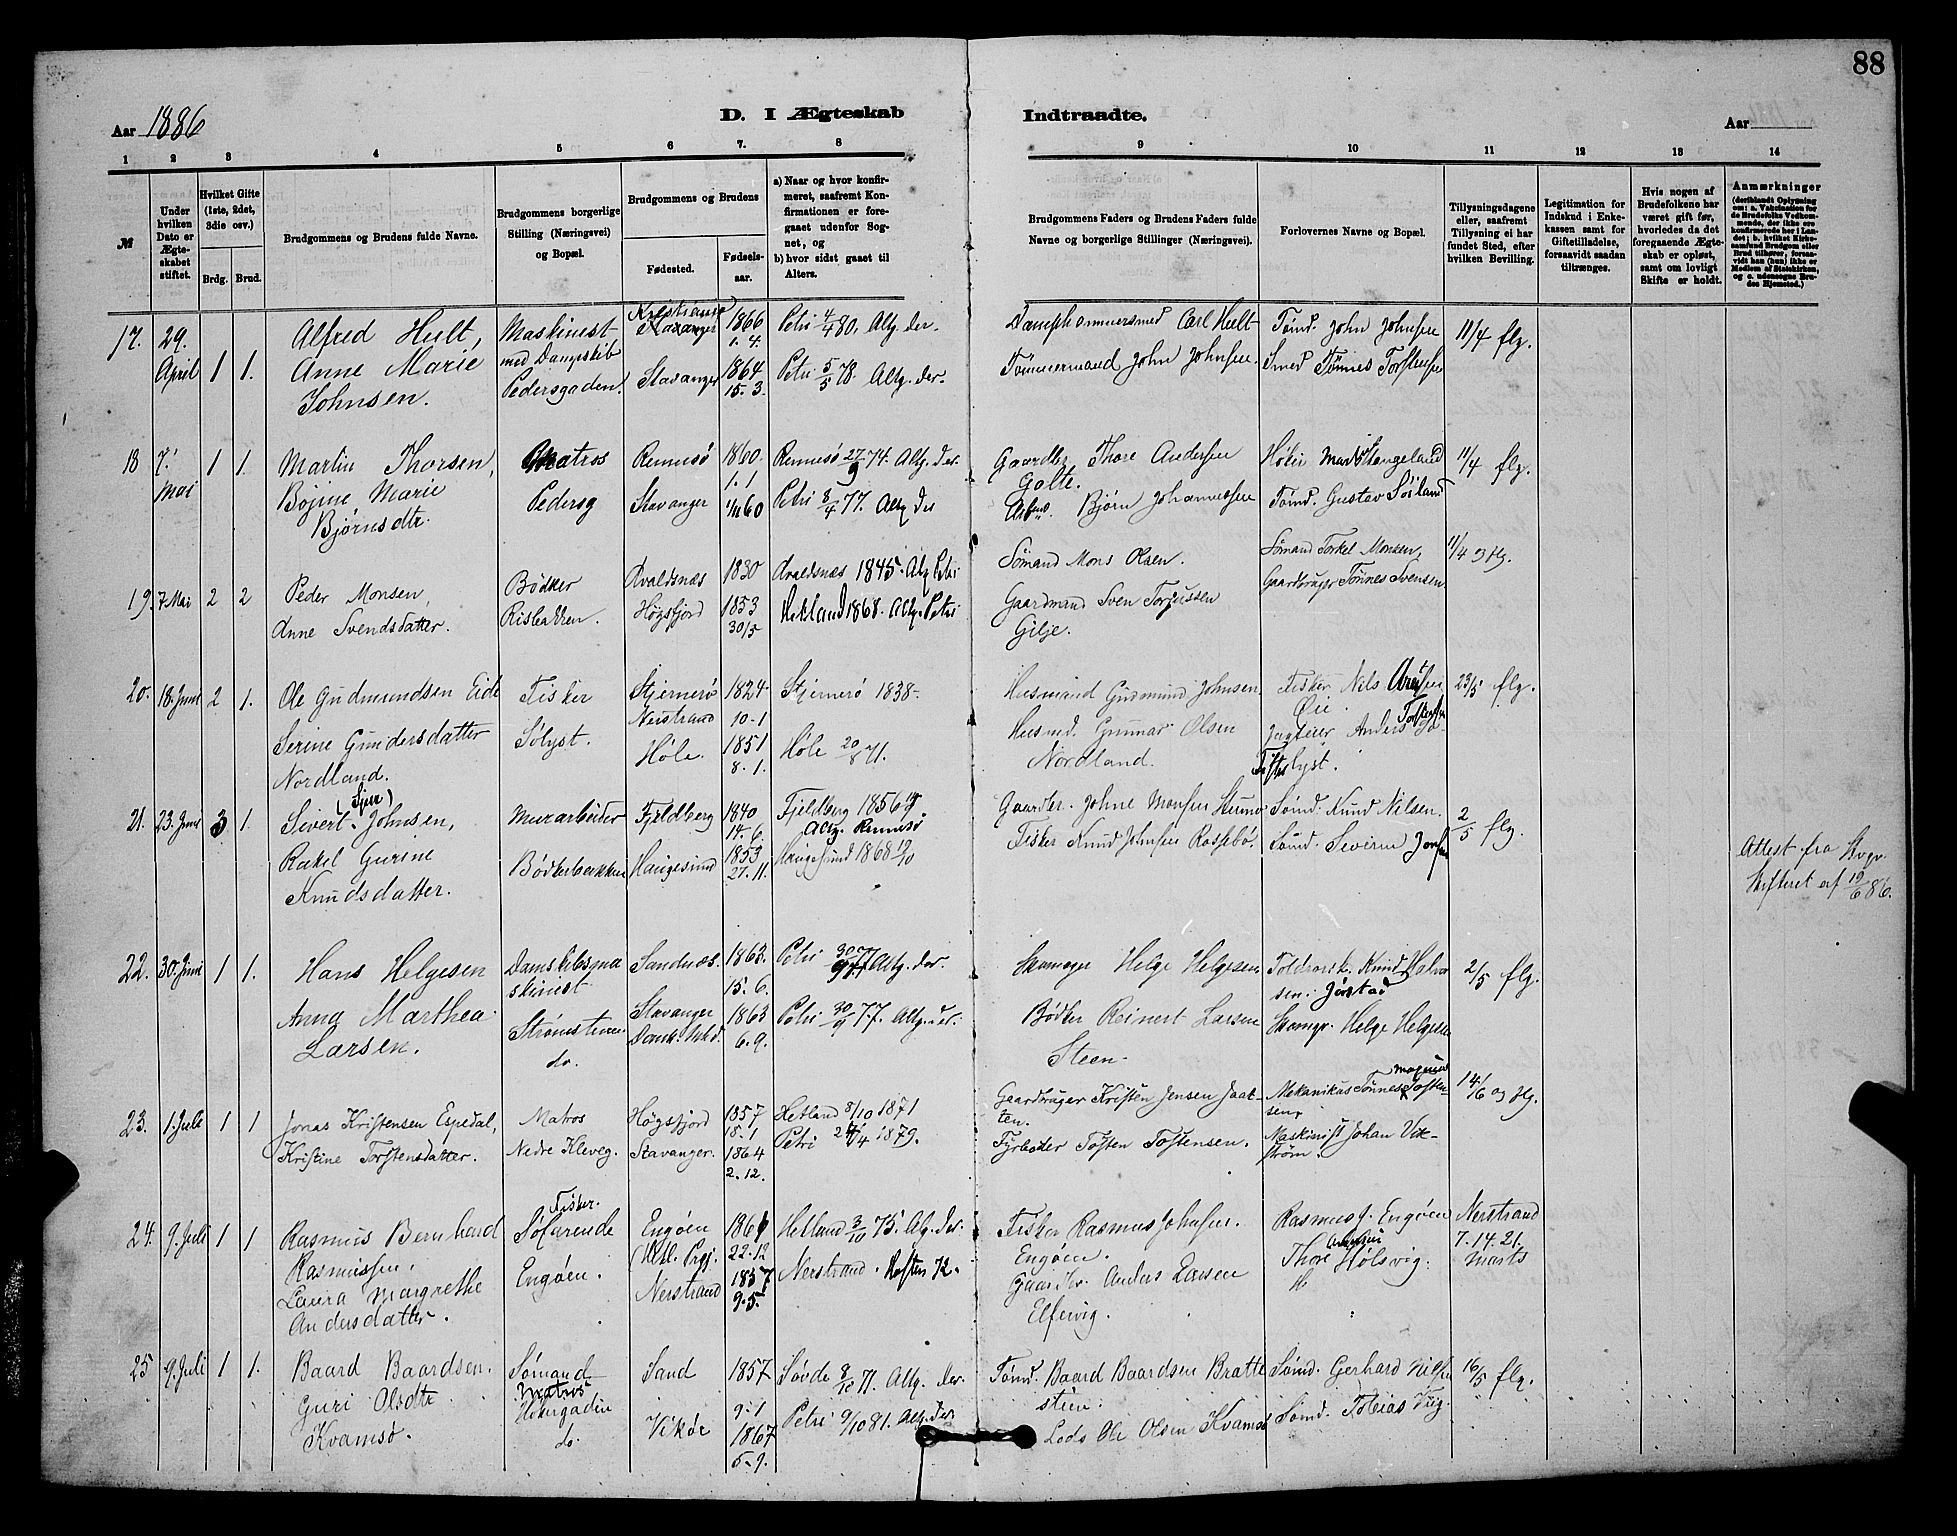 88
Aar 1886
D. I Ægteskab
Indtraadte.
Aar
1 2 3 4 5 6 7. 8
9 10 11 12 13 14
№
Under hvilken Dato er Ægteskabet stiftet.
Hvilket Gifte (1ste, 2det, 3die osv.)
Brdg. Brud.
Brudgommens og Brudens fulde Navne.
Brudgommens borgerlige Stilling (Næringsvei) og Bopæl.
Brudgommens og Brudens
Fødested.
Fødselsaar.
a) Naar og hvor konfirmeret, saafremt Konfirmationen er foregaaet udenfor Sognet, og
b) hvor sidst gaaet til Alters.
Brudgommens Faders og Brudens Faders fulde Navne og borgerlige Stillinger (Næringsvei).
Forlovernes Navne og Bopæl.
Tillysningsdagene eller, saafremt Tillysning ei har fundet Sted, efter hvilken Bevilling.
Legitimation for Indskud i Enkekassen samt for Giftetilladelse, forsaavidt saadan tiltrænges.
Hvis nogen af Brudefolkene har været gift før, hvorledes da det foregaaende Ægteskab er opløst, samt om lovligt Skifte er holdt.
Anmærkninger
17. 29. April 1 1.
Alfred Hult,
Anne Marie
Johnsen.
Maskinist
med Dampskib
Pedersgaden.
Kristiansd
Stavanger
1866
1. 4.
Petri 4/4 80. Altg. der.
Stavanger
1864
15. 3.
Petri 5/5 78. Altg. der.
Carl Hult
Tømmermand John Johnsen.
Tømd. John Johnsen
Smed Tønnes Torstensen
11/4 flg.
18 7. Mai 1 1.
Martin Thorsen,
Bojine Marie
Bjørnsdtr.
Matros
Pedersg
Rennesø
1860.
1. 1
Rennesø 27/9 74. Altg. der.
Stavanger
60
Petri 8/4 77. Altg der
Gaardbr Thore Andersen
Galte.
Bjørn Johannessen
Tømd. Gustav Søiland
11/4 flg.
19. 7 Mai 2 2
Peder Monsen,
Anne Svendsdatter.
Bødker
Risbakken.
Avaldsnæs
1830
Avaldsnæs 1845. Altg Petri
Høgsfjord
1853
30/5
Hetland 1868. Altg. Petri
Sømand Mons Olsen.
Gaardmand Sven Torjussen
Gilje.
Sømand Torkel Monsen,
Gaardbruger Tønnes Svensen
11/4 og flg.
20. 18. Juni 2 1.
Ole Gudmundsen Eide
Serine Gundersdatter
Nordland.
Fisker
Sølyst.
Stjernerø
Nerstrand
1824
10. 1
Stjernerø 1838.
Høle.
1851
8. 1.
Høle 20/8 71.
Husmand Gudmund Johnsen
Husmd. Gunnar Olsen
Nordland.
Fisker Nils
Øie.
Anders Torstensen
23/5 flg.
21. 23. Juni 3 1.
(Sjur)
Sivert Johnsen,
Rakel Gurine
Knudsdatter.
Murarbeider
Bødkerbakken
Fjeldberg
1840
14. 6.
Fjeldberg 1856
Altg. Rennesø
Haugesund
1853
27. 11.
Haugesund 1868
Gaardbr. Johne Monsen
Fisker Knud Johnsen Rossebø.
Sømd. Knud Nilsen.
Sømd. Severin
2/5 flg.
Attest fra
Skifteret af 19/6 86.
22. 30. Juni 1 1.
Hans Helgesen
Anna Marthea
Larsen.
Damskibsma
skinist
Strømsteen
do.
Sandnæs.
1863.
15. 6.
Petri Altg. der.
Stavanger
1863
6. 9.
Petri 30/9 77. Altg. der.
Skomager Helge Helgesen
Bødker Reinert Larsen
Steen.
Toldværk. Knud Halvor
sen. Jørstad
Skomgr. Helge Helgesen
2/5 flg.
23. 1. Juli 1 1
Jonas Kristensen Espedal,
Kristine Torstensdatter.
Matros
Nedre Kleveg.
Høgsfjord
1857
15. 1
Hetland 8/10 1871
Stavanger.
1864
2. 12.
Petri 24/4 1879.
Gaardbruger Kristen Jensen Jaat-
ten.
Fyrbøder Tosten Tostensen.
Mekanikus Tønnes Magnus Tosten-
sen,
Maskinist Johan Vik-
strøm.
14/6 og flg.
24. 9. Juli 1 1
Rasmus Bernhard
Rasmussen.
Laura Margrethe
Andersdatter.
Fisker.
Søfarende
Engøen.
Engøen
(Hetl. Prgj.
22. 12
Hetland 3/10 75. Altg. der.
Nerstrand
1857
9. 5.
Nerstrand. Høsten 72.
Fisker Rasmus Johnsen.
Engøen.
Gaardbr. Anders Larsen
Elfervig.
Rasmus J. Engøen
Thore Hølsvig.
Nerstrand
7. 14. 21.
Marts
25 9. Juli 1 1.
Baard Baardsen.
Guri Olsdtr
Kvamsø.
Sømand
Matros
Høkergaden
do.
Sand
1857
9. 1
Søvde 8/10 71. Altg. der
Vikør
1867
5. 9.
Petri 9/10 81. Altg. der
Tømd. Baard Baardsen Bratte
steen.
Lods Ole Olsen Kvamsø
Sømd. Gerhard Nilsen
Sømd. Tobias Viig.
16/5 flg.